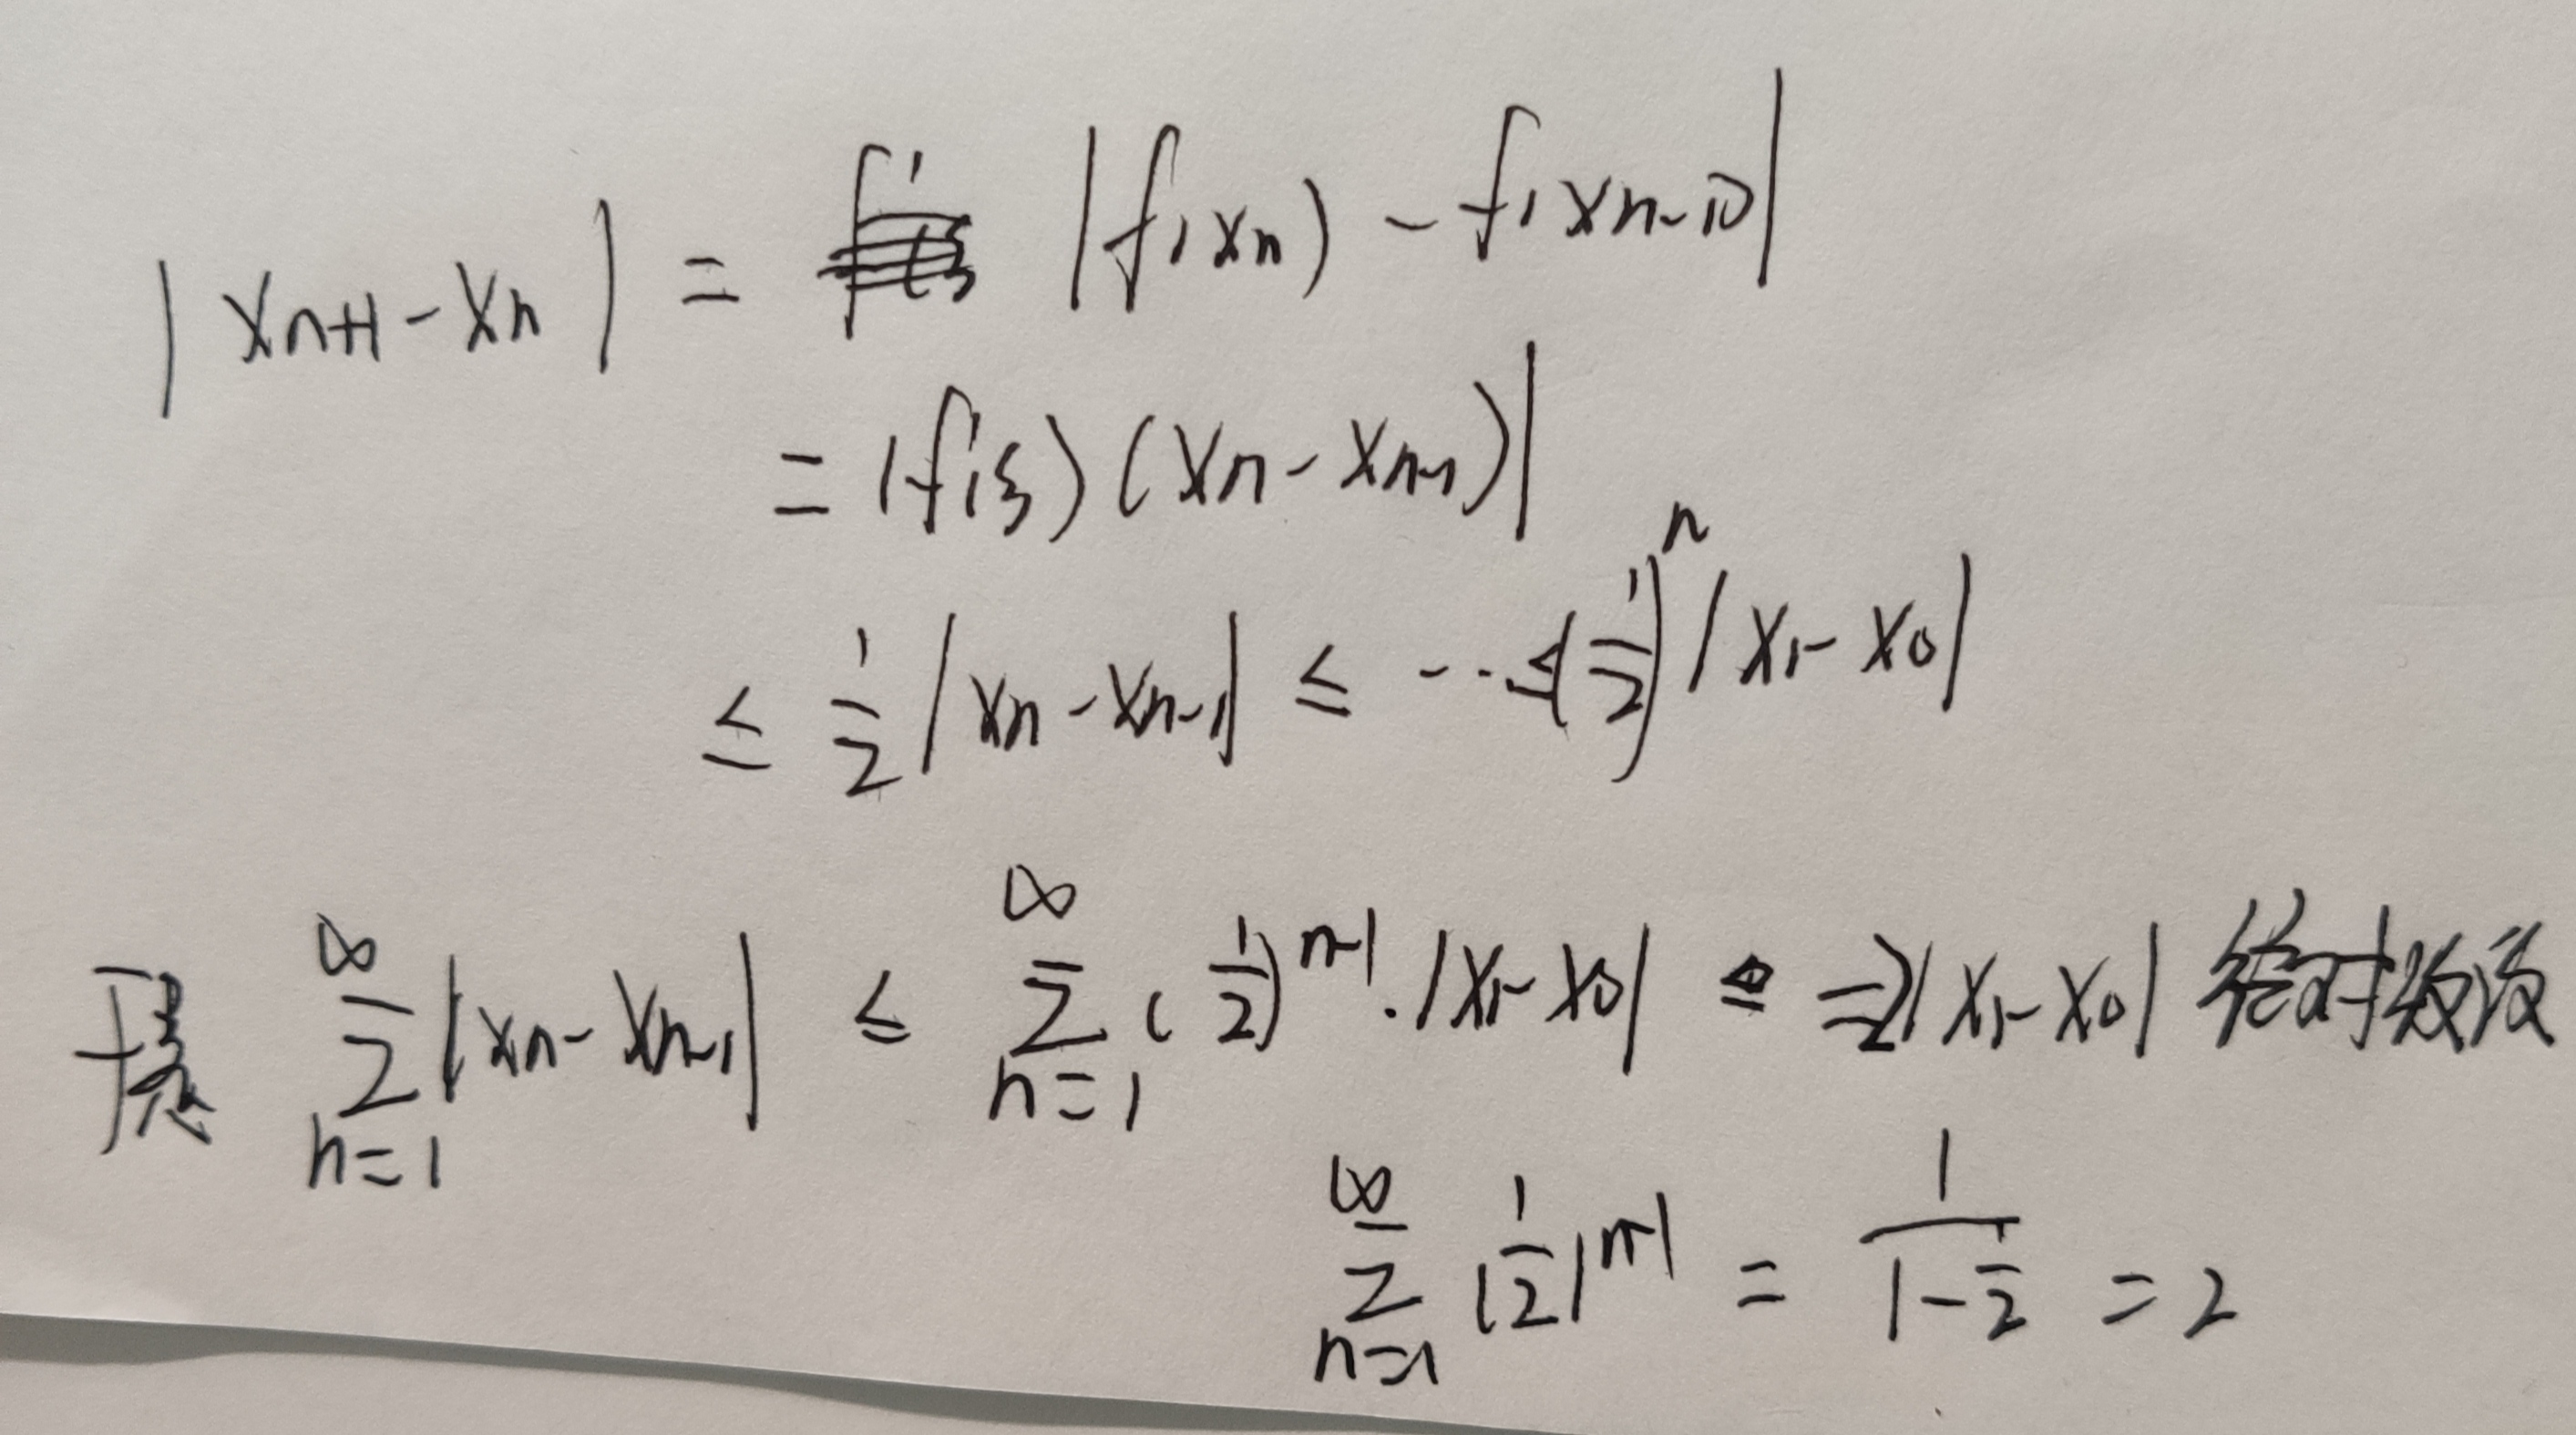 |xn+1-xn| = |f(xn)-f(xn-1)|
= |f'(ξ)(xn-xn-1)|
≤ 1/2 |xn-xn-1| ≤ ... ≤ (1/2)^n |x1-x0|
∞∑n=1 |xn-xn-1| ≤ ∞∑n=1 (1/2)^n-1 · |x1-x0| = 2|x1-x0| 绝对收敛
∞∑n=1 (1/2)^n-1 = 1/(1-1/2) = 2